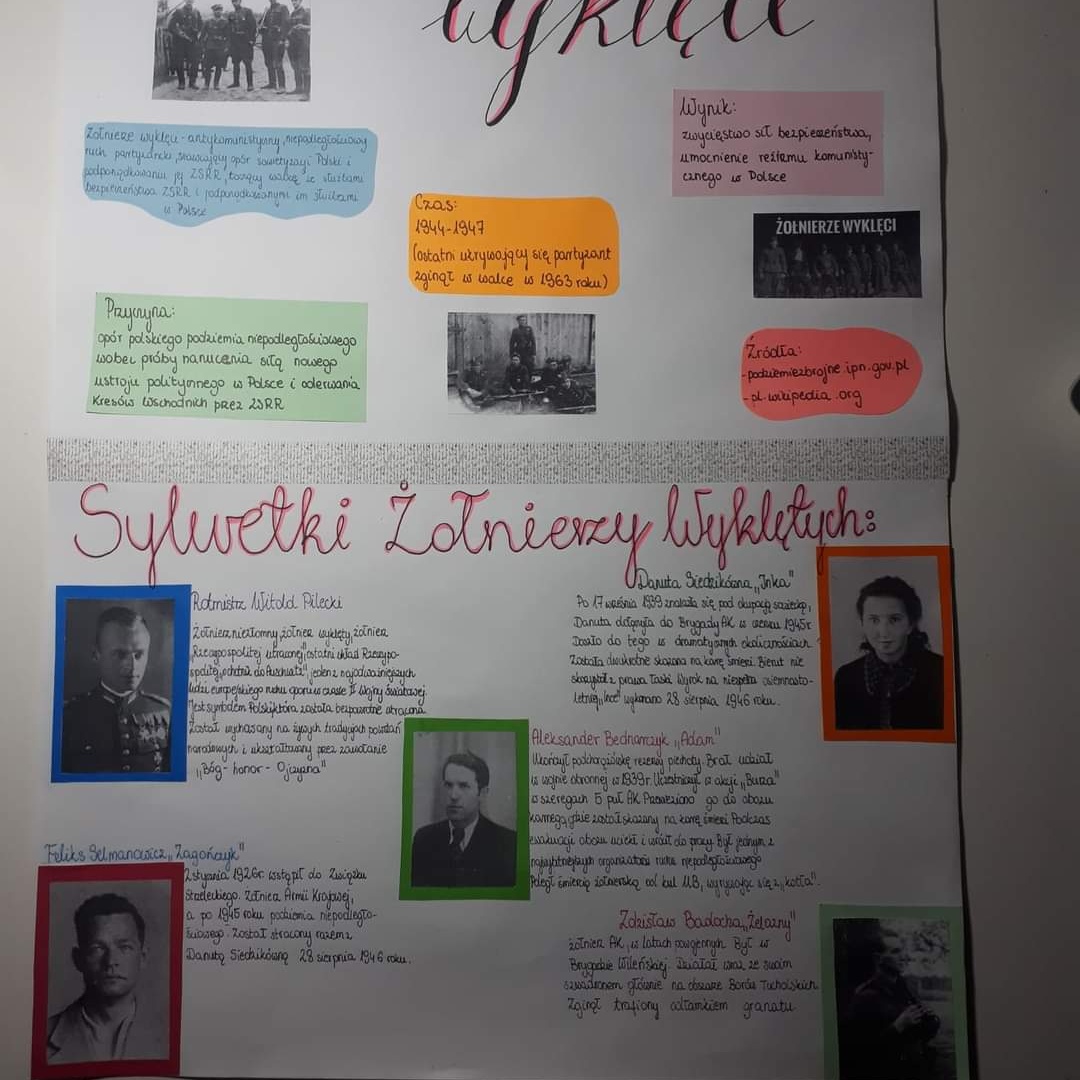 wyklęci
Żołnierze wyklęci - antykomunistyczny, niepodległościowy
ruch partyzancki, stawiający opór sowietyzacji Polski i
podporządkowaniu jej ZSRR, toczący walkę ze służbami
bezpieczeństwa ZSRR i podporządkowanymi im służbami
w Polsce
Wynik:
zwycięstwo sił bezpieczeństwa,
umocnienie reżimu komunisty-
cznego w Polsce
Czas:
1944-1947
(ostatni ukrywający się partyzant
zginął w walce w 1963 roku)
ŻOŁNIERZE WYKLĘCI
Przyczyna:
opór polskiego podziemia niepodległościowego
wobec próby narzucenia siłą nowego
ustroju politycznego w Polsce i oderwania
Kresów Wschodnich przez ZSRR
Źródła:
-podziemiezbrojne.ipn.gov.pl
-pl.wikipedia.org
Sylwetki Żołnierzy Wyklętych:
Rotmistrz Witold Pilecki
Żołnierz niezłomny, żołnierz wyklęty, żołnierz
"Rzeczypospolitej utraconej", ostatni ułan Rzeczypo-
spolitej, "ochotnik do Auschwitz", jeden z najodważniejszych
ludzi europejskiego ruchu oporu w czasie II Wojny Światowej.
Jest symbolem Polski, która została bezpowrotnie utracona.
Został wychowany na żywych tradycjach powstań
narodowych i ukształtowany przez zawołanie
"Bóg - honor - Ojczyzna"
Danuta Siedzikówna "Inka"
Po 17 września 1939 znalazła się pod okupacją sowiecką,
Danuta dołączyła do Brygady AK w czerwcu 1945r
Doszło do tego w dramatycznych okolicznościach.
Została dwukrotnie skazana na karę śmierci. Bierut nie
skorzystał z prawa łaski. Wyrok na niespełna osiemnasto-
letniej "Ince" wykonano 28 sierpnia 1946 roku.
Aleksander Bednarczyk "Adam"
Ukończył podchorążówkę rezerwy piechoty. Brał udział
w wojnie obronnej w 1939r. Uczestniczył w akcji "Burza"
w szeregach 5 puł AK. Przewieziono go do obozu
karnego, gdzie został skazany na karę śmierci. Podczas
ewakuacji obozu uciekł i wrócił do pracy. Był jednym z
najwybitniejszych organizatorów ruchu niepodległościowego
Poległ śmiercią żołnierską od kul UB, wyrywając się z "kotła".
Feliks Selmanowicz "Zagończyk"
2 stycznia 1926r. wstąpił do Związku
Strzeleckiego. Żołnierz Armii Krajowej,
a po 1945 roku podziemia niepodległo-
ściowego. Został stracony razem z
Danutą Siedzikówną 28 sierpnia 1946 roku.
Zdzisław Badocha "Żelazny"
żołnierz AK, w latach powojennych. Był w
Brygadzie Wileńskiej. Działał wraz ze swoim
szwadronem głównie na obszarze Borów Tucholskich.
Zginął trafiony odłamkiem granatu